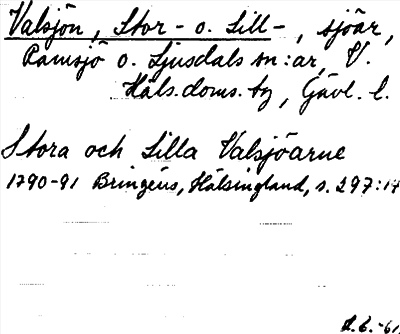 Valsjön, Stor- o. Lill-, sjöar,
Ramsjö o. Ljusdals sn:ar, V.
Häls. doms. bg, Gävl. l.
Stora och Lilla Valsjöarne
1790-91 Bringéus, Hälsingland, s. 297:14